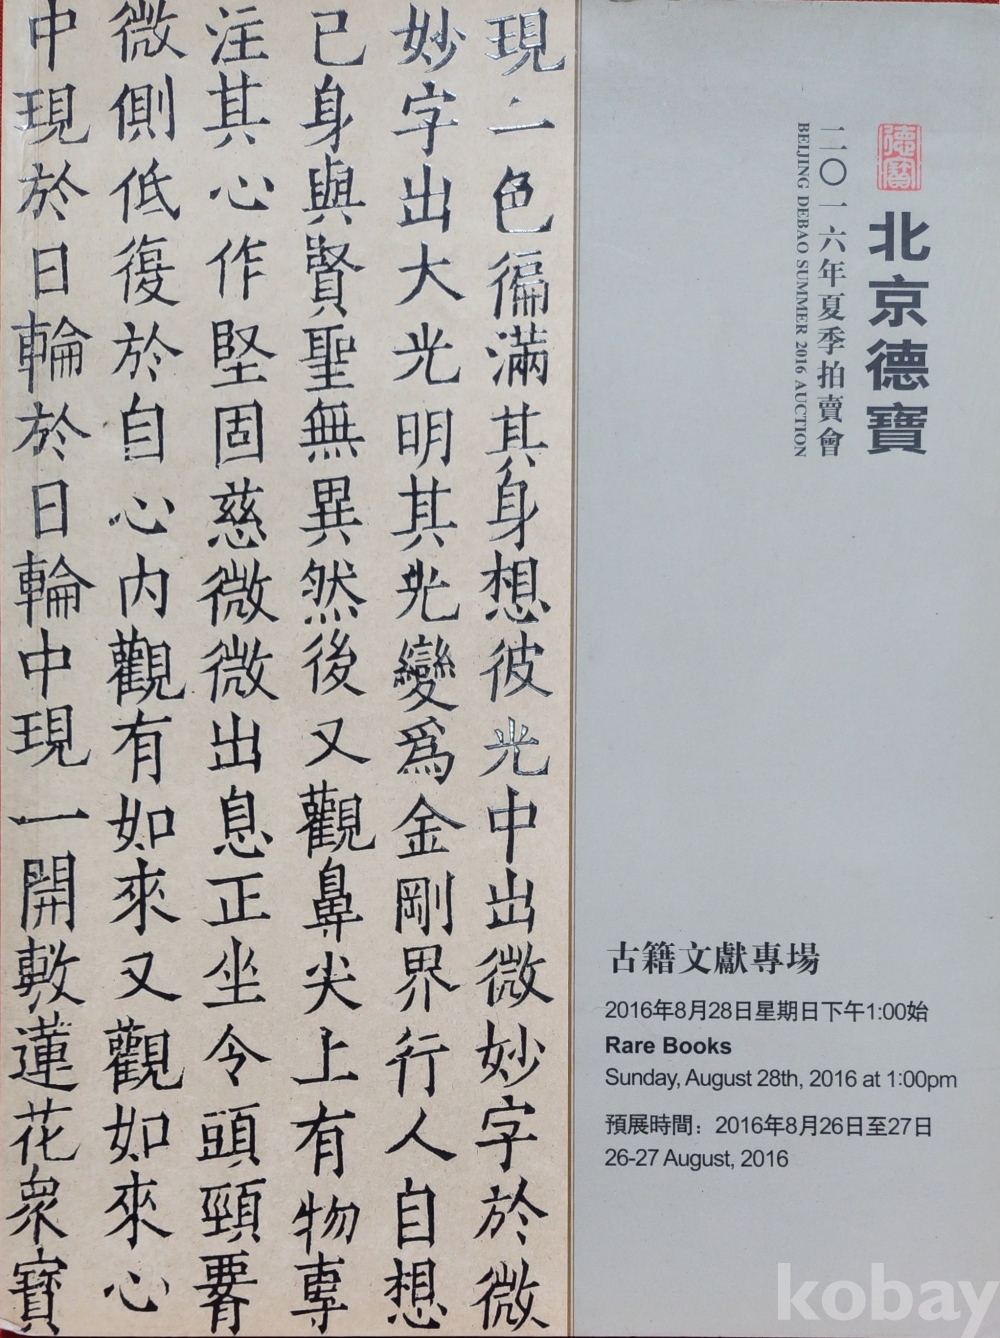 現一色徧滿其身想彼光中出微妙字於微
妙字出大光明其光變爲金剛界行人自想
已身與賢聖無異然後又觀鼻尖上有物專
注其心作堅固慈微微出息正坐令頭頸
微側低復於自心内觀有如來又觀如來心
中現於日輪於日輪中現一開敷蓮花衆寶
德寶
北京德寶
二〇一六年夏季拍賣會
BEIJING DEBAO SUMMER 2016 AUCTION
古籍文獻專場
2016年8月28日星期日下午1:00始
Rare Books
Sunday, August 28th, 2016 at 1:00pm
預展時間：2016年8月26日至27日
26-27 August, 2016
kobay